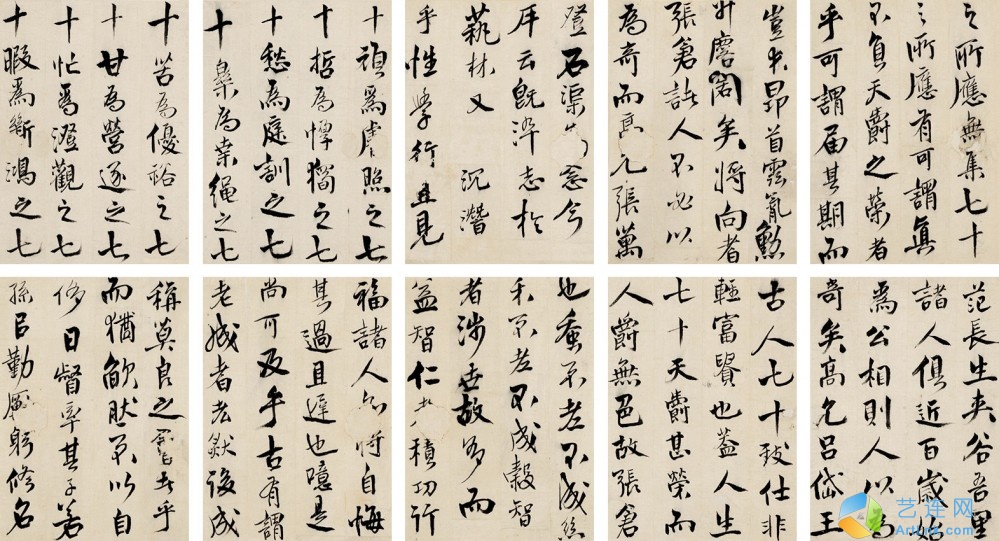 之所應無集七十
之所應有可謂真
不負天爵之榮者
乎可謂届其期而
豈其昂首雲霓勲
寥闊矣將向者
張倉諸人不必以
為奇而高允張萬
登石渠念今
云既淬志於
蓺林又沉潛
乎性學行且見
十頑為虛照之七
十哲為惇獨之七
十愁為庭訓之七
十為束繩之七
十苦為優裕之七
十甘為營逐之七
十忙為澄觀之七
十暇為漸鴻之七
范長生夾谷吾里
諸人俱近百歲始
為公相則人以為
奇矣高允呂岱王
古人七十致仕非
輕富貴也蓋人生
七十天爵甚榮而
人爵無色故張倉
也蚕不老不成絲
禾不老不成穀智
者涉世故多而
益智仁者積功行
福諸人而將自悔
其過且遲也噫是
尚可及乎古有謂
老成者老然後成
稱莫良之翁者乎
而猶歉然不以自
侈日督率其子若
孫以勤厲躬修名
艺连网
Artlnk.com